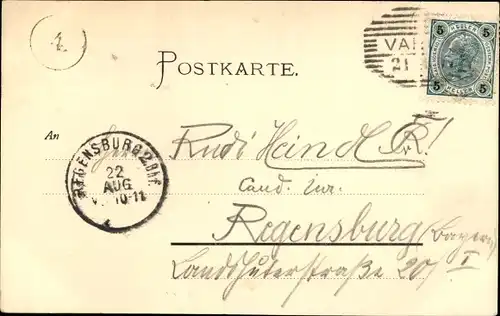 VAH
21
5 5
HELLER
5 5
POSTKARTE.
An
Herrn
Rudi Heindl
REGENSBURG 2. Bhf.
22
AUG
V. 10-11
Cand. iur.
Regensburg (Bayern)
Landshuterstraße 20/I